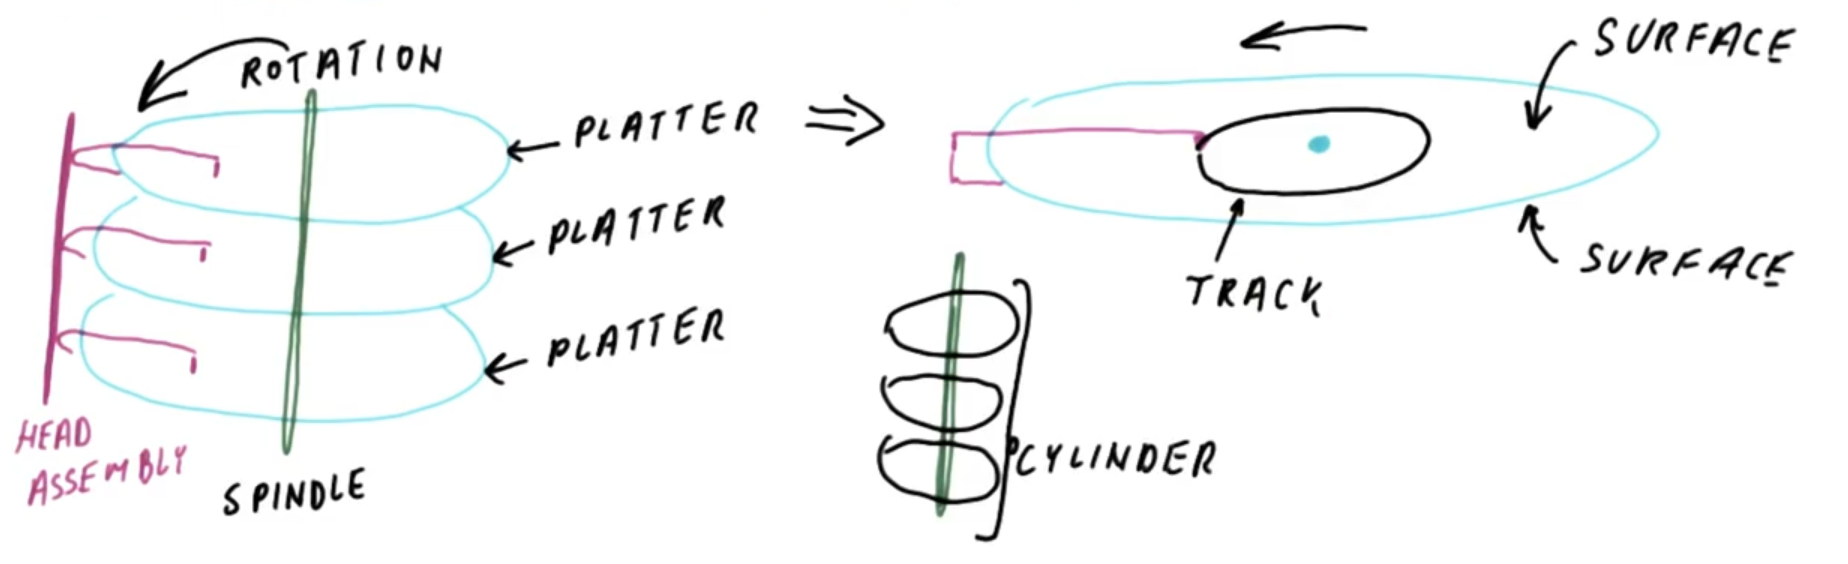 ROTATION
PLATTER
PLATTER
PLATTER
HEAD
ASSEMBLY
SPINDLE
SURFACE
SURFACE
TRACK
CYLINDER